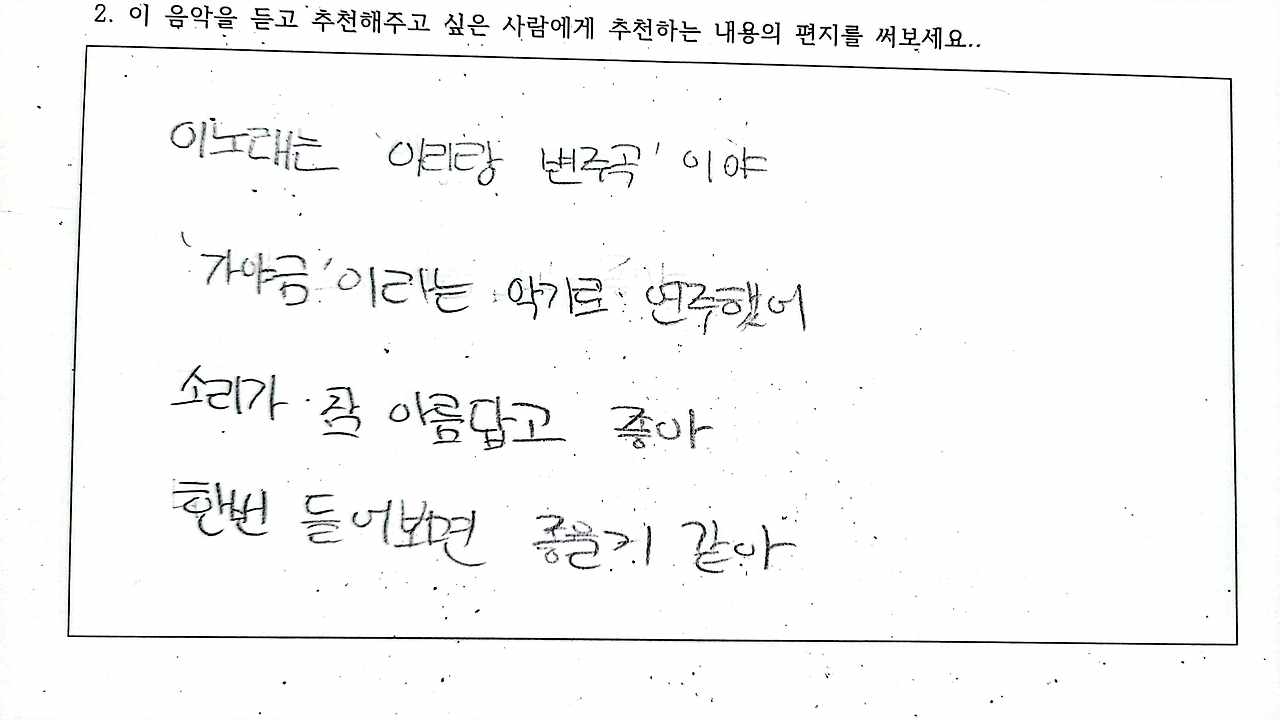 2. 이 음악을 듣고 추천해주고 싶은 사람에게 추천하는 내용의 편지를 써보세요..
이노래는 '아리랑 변주곡' 이야
'가야금'이라는 악기로 연주했어
소리가 참 아름답고 좋아
한번 들어보면 좋을거 같아